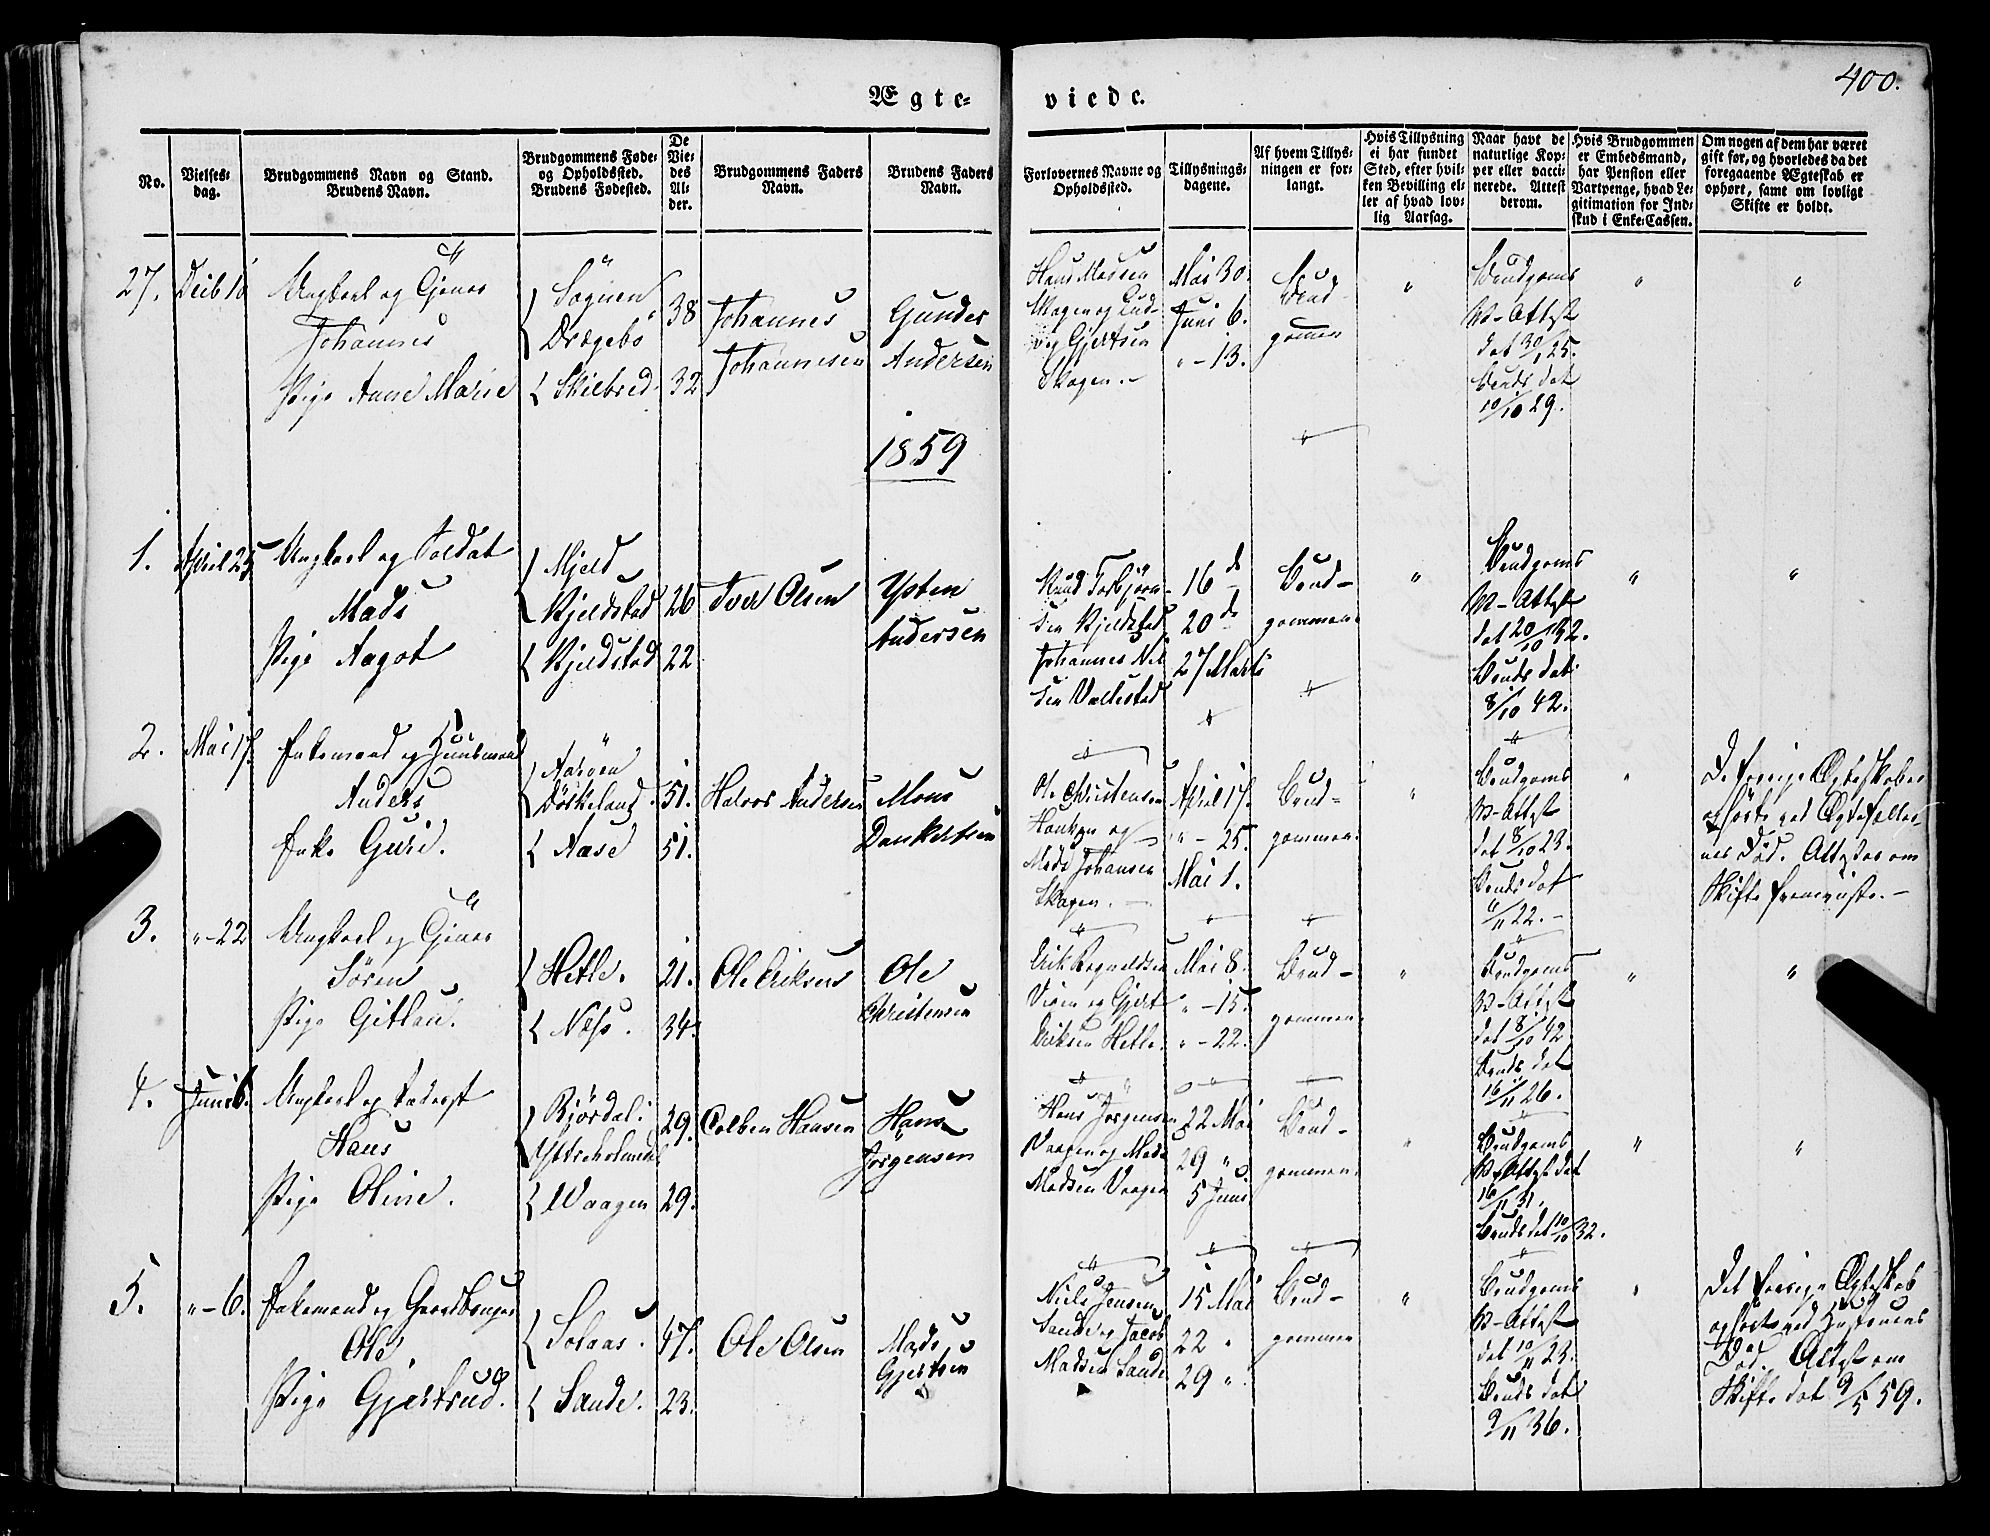 400.
Ægte-
viede.
No.
Vielses-
dag.
Brudgommens Navn og Stand.
Brudens Navn.
Brudgommens Føde-
og Opholdssted.
Brudens Fødested.
De
Vie-
des
Al-
der.
Brudgommens Faders
Navn.
Brudens Faders
Navn.
Forlovernes Navne og
Opholdssted.
Tillysnings-
dagene.
Af hvem Tillys-
ningen er for-
langt.
Hvis Tillysning
ei har fundet
Sted, efter hvil-
ken Bevilling el-
ler af hvad lov-
lig Aarsag.
Naar havt de
naturlige Kop-
per eller vacci-
nerede. Attest
derom.
Hvis Brudgommen
er Embedsmand,
har Pension eller
Vartpenge, hvad Le-
gitimation for Ind-
skud i Enke-Cassen.
Om nogen af dem har været
gift før, og hvorledes da det
foregaaende Ægteskab er
ophørt, samt om lovligt
Skifte er holdt.
27.
Ungkarl og
Johannes
Pige Anne Marie
Drægebø
Skilbred
38
32
Johannes
Johannesen
Gunder
Andersen
Hans Madsen
Skagen og Lud-
vig Gjertsen
Skagen.
Mai 30.
Juni 6.
" - 13.
Brud-
gommen
"
Brudgoms
V-Attest
dat 30/1 25.
Bruds dat
10/10 29.
"
"
1859
1.
April 25
Ungkarl og Soldat
Mads
Pige Aagot
Mjeld
Kjeldstad
Kjeldstad
26
22
Iver Olsen
Ysten
Andersen
Knud Torbjørn-
sen Kjeldstad
Johannes Nil
sen Vallestad
16 d
20 d
27 Marts
Brud-
gommen
"
Brudgoms
V-Attest
dat 20/10 32.
Bruds dat
8/10 42.
"
"
2.
Mai 17.
Enkemand og Huusmand
Anders
Enke Guri.
Aarøen
Døskeland.
Aase
51.
51.
Halvor Andersen
Mons
Dankertsen
Ole Christensen
og
Mads Johansen
Skagen.
April 17.
" - 25.
Mai 1.
Brud-
gommen
"
Brudgoms
V-Attest
dat 8/10 23.
Bruds dat
/11 22.
"
De forrige Ægteskaber
ophørte ved Ægtefæller-
nes Død. Attester om
Skifte fremviste.
3.
" - 22
Ungkarl og
Søren
Pige Gitlau.
Hetle.
Næss.
21.
34.
Ole Eriksen
Ole
Christensen
Erik Ragnvaldsen
og Gjert
Eriksen Hetle.
Mai 8.
" - 15.
" - 22.
Brud-
gommen
"
Brudgoms
V-Attest
dat 8/10 42
Bruds dat
16/11 26.
"
"
4.
Juni 6.
Ungkarl og Føderaad
Hans
Pige Oline.
Bjørdal.
Waagen
29.
29.
Colben Hansen
Hans
Jørgensen
Hans Jørgensen
Vaagen og Mads
Madsen Vaagen
22 Mai
29 "
5 Juni
Brud-
gommen
"
Brudgoms
V-Attest dat
16/11 31.
Bruds dat 10/10 32.
"
"
5.
" - 6.
Enkemand og Gaardbruger
Ole
Pige Gjertrud.
Solaas.
Sande.
47.
23.
Ole Olsen
Mads
Gjertsen
Niels Jensen
Sande og Jacob
Madsen Sande
15 Mai
22 "
29 "
Brud-
gommen
"
Brudgoms
V-Attest
dat 10/11 23.
Bruds dat
9/11 36.
"
Det forrige Ægteskab
ophørt ved Hustruens
Død. Attest om
Skifte dat 9/5 59.